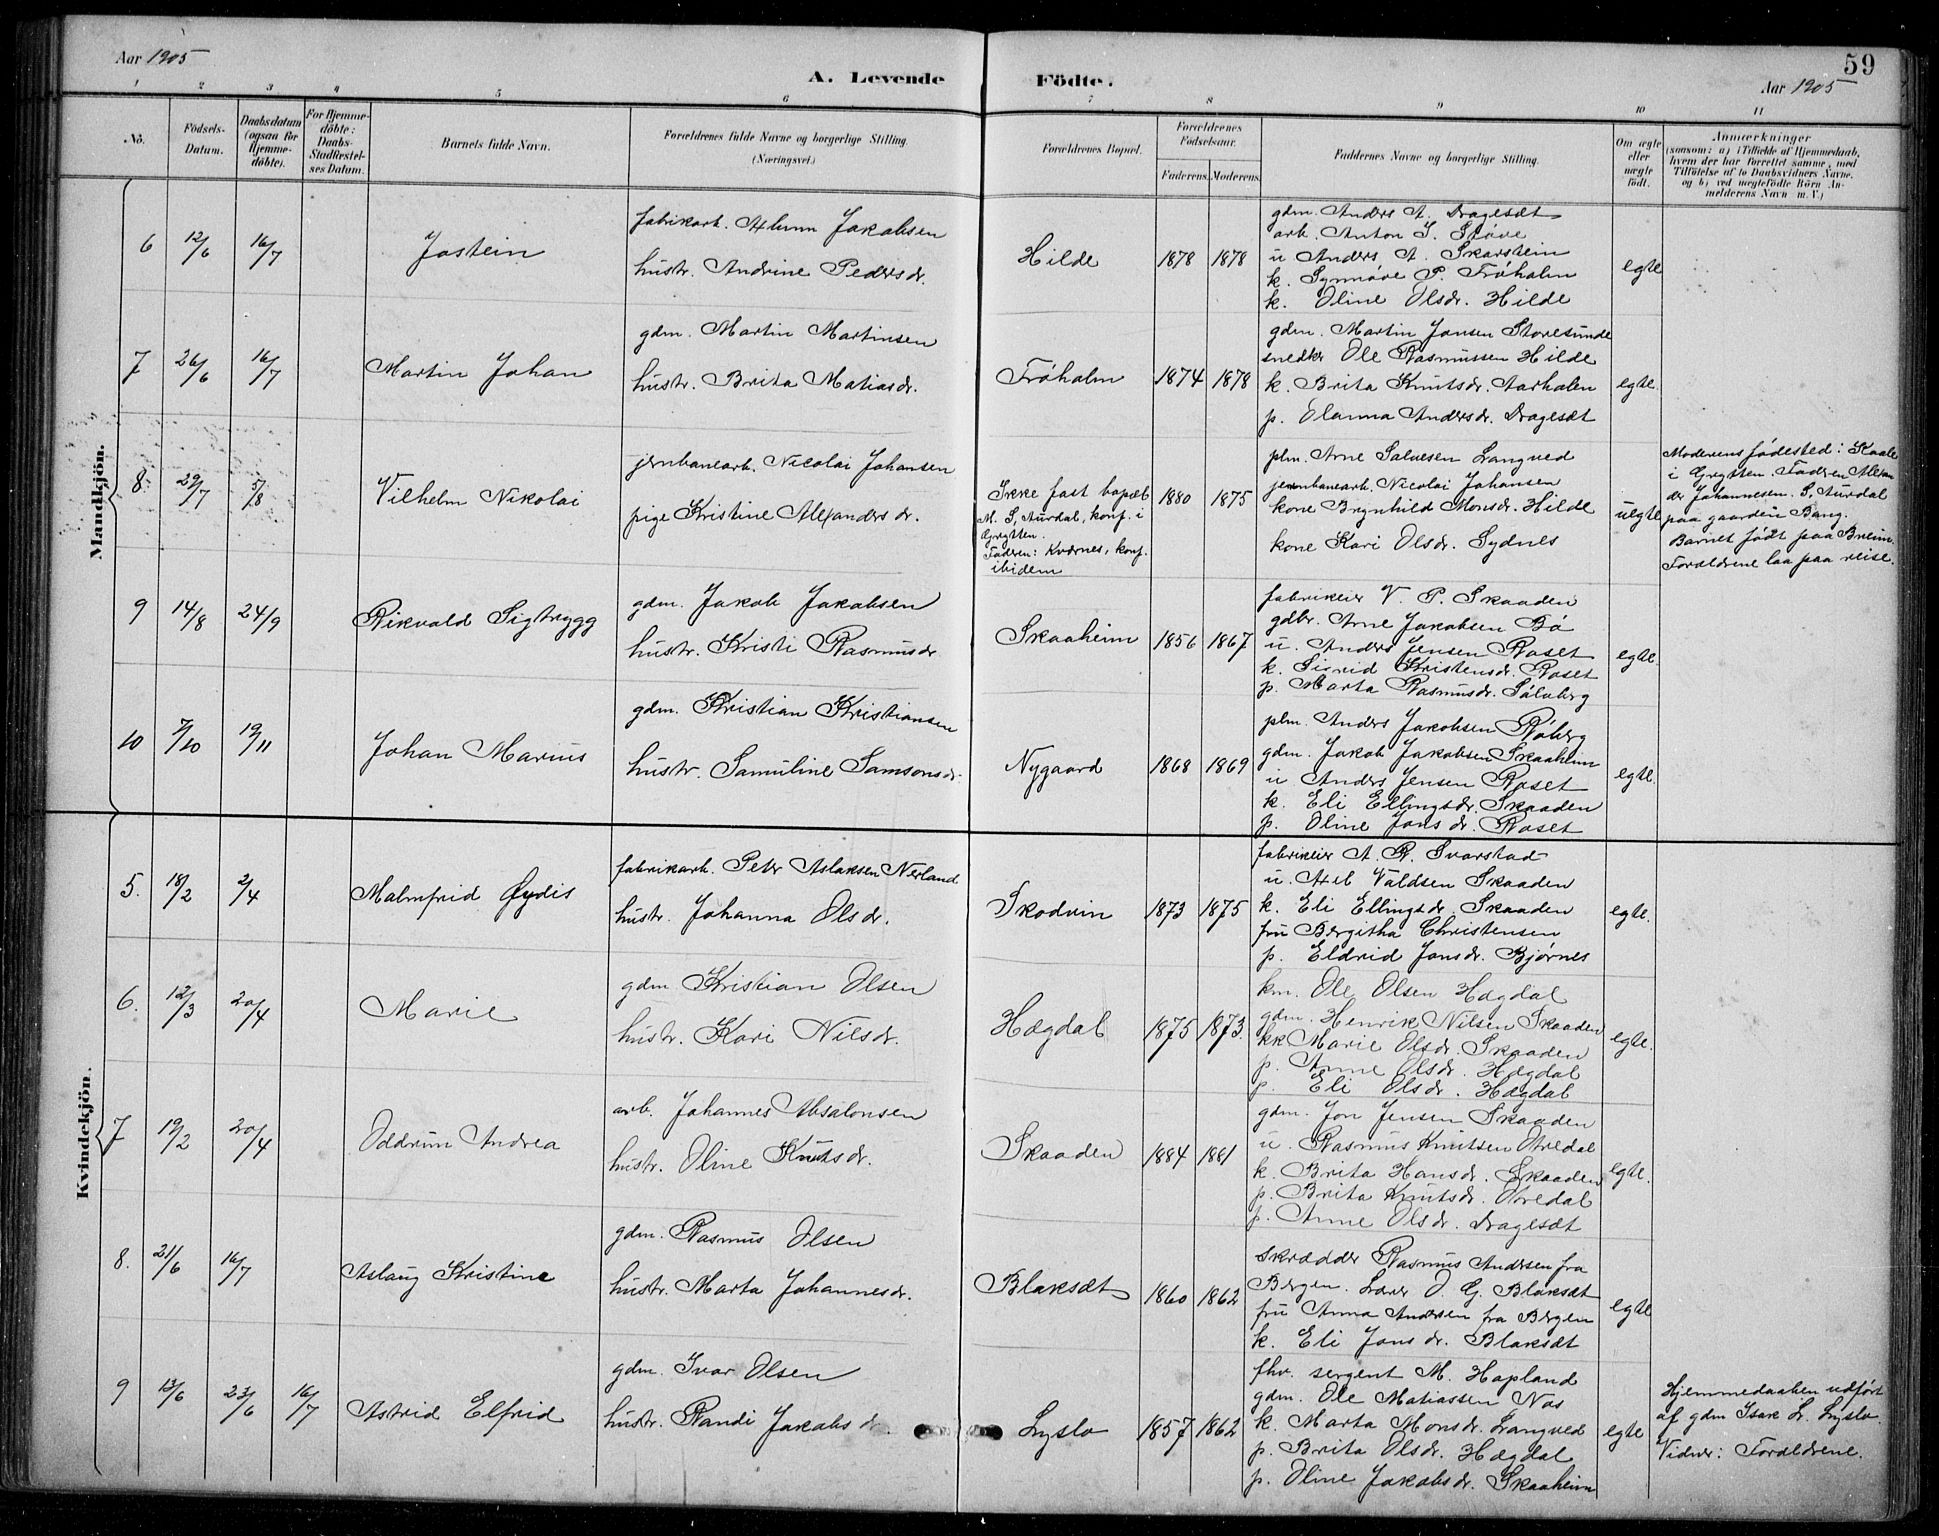 Aar 1905
A. Levende Födte.
Aar 1905
59
1 2 3 4 5 6 7 8 9 10 11
No.
Födsels-Datum.
Daabsdatum (ogsaa for Hjemme-döbte).
For Hjemme-döbte: Daabs-Stadfæstel-ses Datum.
Barnets fulde Navn.
Forældrenes fulde Navne og borgerlige Stilling.
(Næringsvei.)
Forældrenes Bopæl.
Forældrenes Födselsaar.
Faderens. Moderens.
Faddernes Navne og borgerlige Stilling.
Om ægte eller uægte födt.
Anmærkninger
(saasom: a) i Tilfælde af Hjemmedaab,
hvem der har forrettet samme, med
Tilföielse af to Daabsvidners Navne,
og b) ved uægtefödte Börn An-
melderens Navn m. V.)
Mandkjön.
6 12/6 16/7 Jostein
fabrikarb. Jakobsen
hustr. Andrine Pedersdr.
Hilde 1878 1878
gdm. Anders A. Dragesæt
arb. Anton J. Støve
u Anders A. Skarstein
k. Synnøve P. Frøholm
k. Oline Olsdr. Hilde
egte
7 26/6 16/7 Martin Johan
gdm. Martin Martinsen
hustr. Brita Matiasdr.
Frøholm 1874 1878
gdm. Martin Jansen Storesunde
snedkr Ole Rasmussen Hilde
k. Brita Knutsdr. Aarholen
p. Olanna Andersdr. Dragesæt
egte.
8. 29/7 5/8 Vilhelm Nikolai
jernbanearb. Nicolai Johansen
pige Kristine Alexandersdr.
Ikke fast bopæl
M. S. Aurdal, konf. i
Grytten.
Fadren: Kværnes, konf.
ibidem
1880 1875
plm. Arne Salvesen Langved
jernbanearb. Nicolai Johansen
kone Brynhild Monsdr. Hilde
kone Kari Olsdr. Sydnes
uegte
Moderens fødested: Kaale
i Grytten. Fadren Alexan
der Johannesen. S. Aurdal
paa gaarden Bang.
Barnet født paa Breim.
Forældrene laa paa reise.
9 14/8 24/9 Rikvald Sigtrygg
gdm. Jakob Jakobsen
hustr. Kristi Rasmusdr
Skaaheim 1856 1867
fabrikeier V. P. Skaaden
gdbr. Arne Jakobsen Bø
u. Anders Jensen Roset
k. Sigrid Kristensdr. Roset
p. Marta Rasmusdr. Sølvberg
egte.
10 7/10 19/11 Johan Marius
gdm. Kristian Kristiansen
hustr. Samuline Samsonsdr.
Nygaard 1868 1869
plm. Anders Jakobsen Røberg
gdm. Jakob Jakobsen Skaaheim
u Anders Jensen Roset
k. Eli Ellingsdr. Skaaden
p. Oline Jonsdr. Roset
egte.
Kvindekjön.
5. 18/2 2/4 Malmfrid Øydis
fabrikarb. Peter Aslaksen Nerland
hustr. Johanna Olsdr.
Skodvin 1873 1875
fabrikeier A. R. Svarstad
u. Axel Valdsen Skaaden
k. Eli Ellingsdr. Skaaden
fru Bergitha Christensen
p. Eldrid Jonsdr. Bjørnes
egte.
6. 12/3 20/4 Marie
gdm Kristian Olsen
hustr. Kari Nilsdr.
Hægdal 1875 1873.
km. Ole Olsen Hægdal
gdm. Henrik Nilsen Skaaden
kk Marie Olsdr. Skaaden
p. Anne Olsdr. Hægdal
p. Eli Olsdr. Hægdal
egte.
7 19/2 20/4 Oddrun Andrea
arb. Johannes Absalonsen
hustr. Oline Knutsdr.
Skaaden 1884 1881
gdm. Jon Jensen Skaaden
u. Rasmus Knutsen Otredal
k. Brita Hansdr. Skaaden
p. Brita Knutsdr. Otredal
p. Anne Olsdr. Dragesæt
egte.
8. 21/6 16/7 Aslaug Kristine
gdm. Rasmus Olsen
hustr. Marta Johannesdr.
Blaksæt 1860 1862
Skrædder Rasmus Andersen fra
Bergen. Lærer O. G. Blaksæt
fru Anna Andersen fra Bergen
k. Eli Jonsdr. Blaksæt
egte
9 13/6 23/6 16/7 Astrid Elfrid
gdm. Ivar Olsen
hustr. Randi Jakobsdr.
Lyslo 1857 1862
fhv. sergent M. Hopland
gdm. Ole Matiassen Nos
k. Marta Monsdr. Langved
p. Brita Olsdr. Hægdal
p. Oline Jakobsdr. Skaaheim
egte
Hjemmedaaben udført
af gdm Isak L. Lyslo.
Vidner: Forældrene.